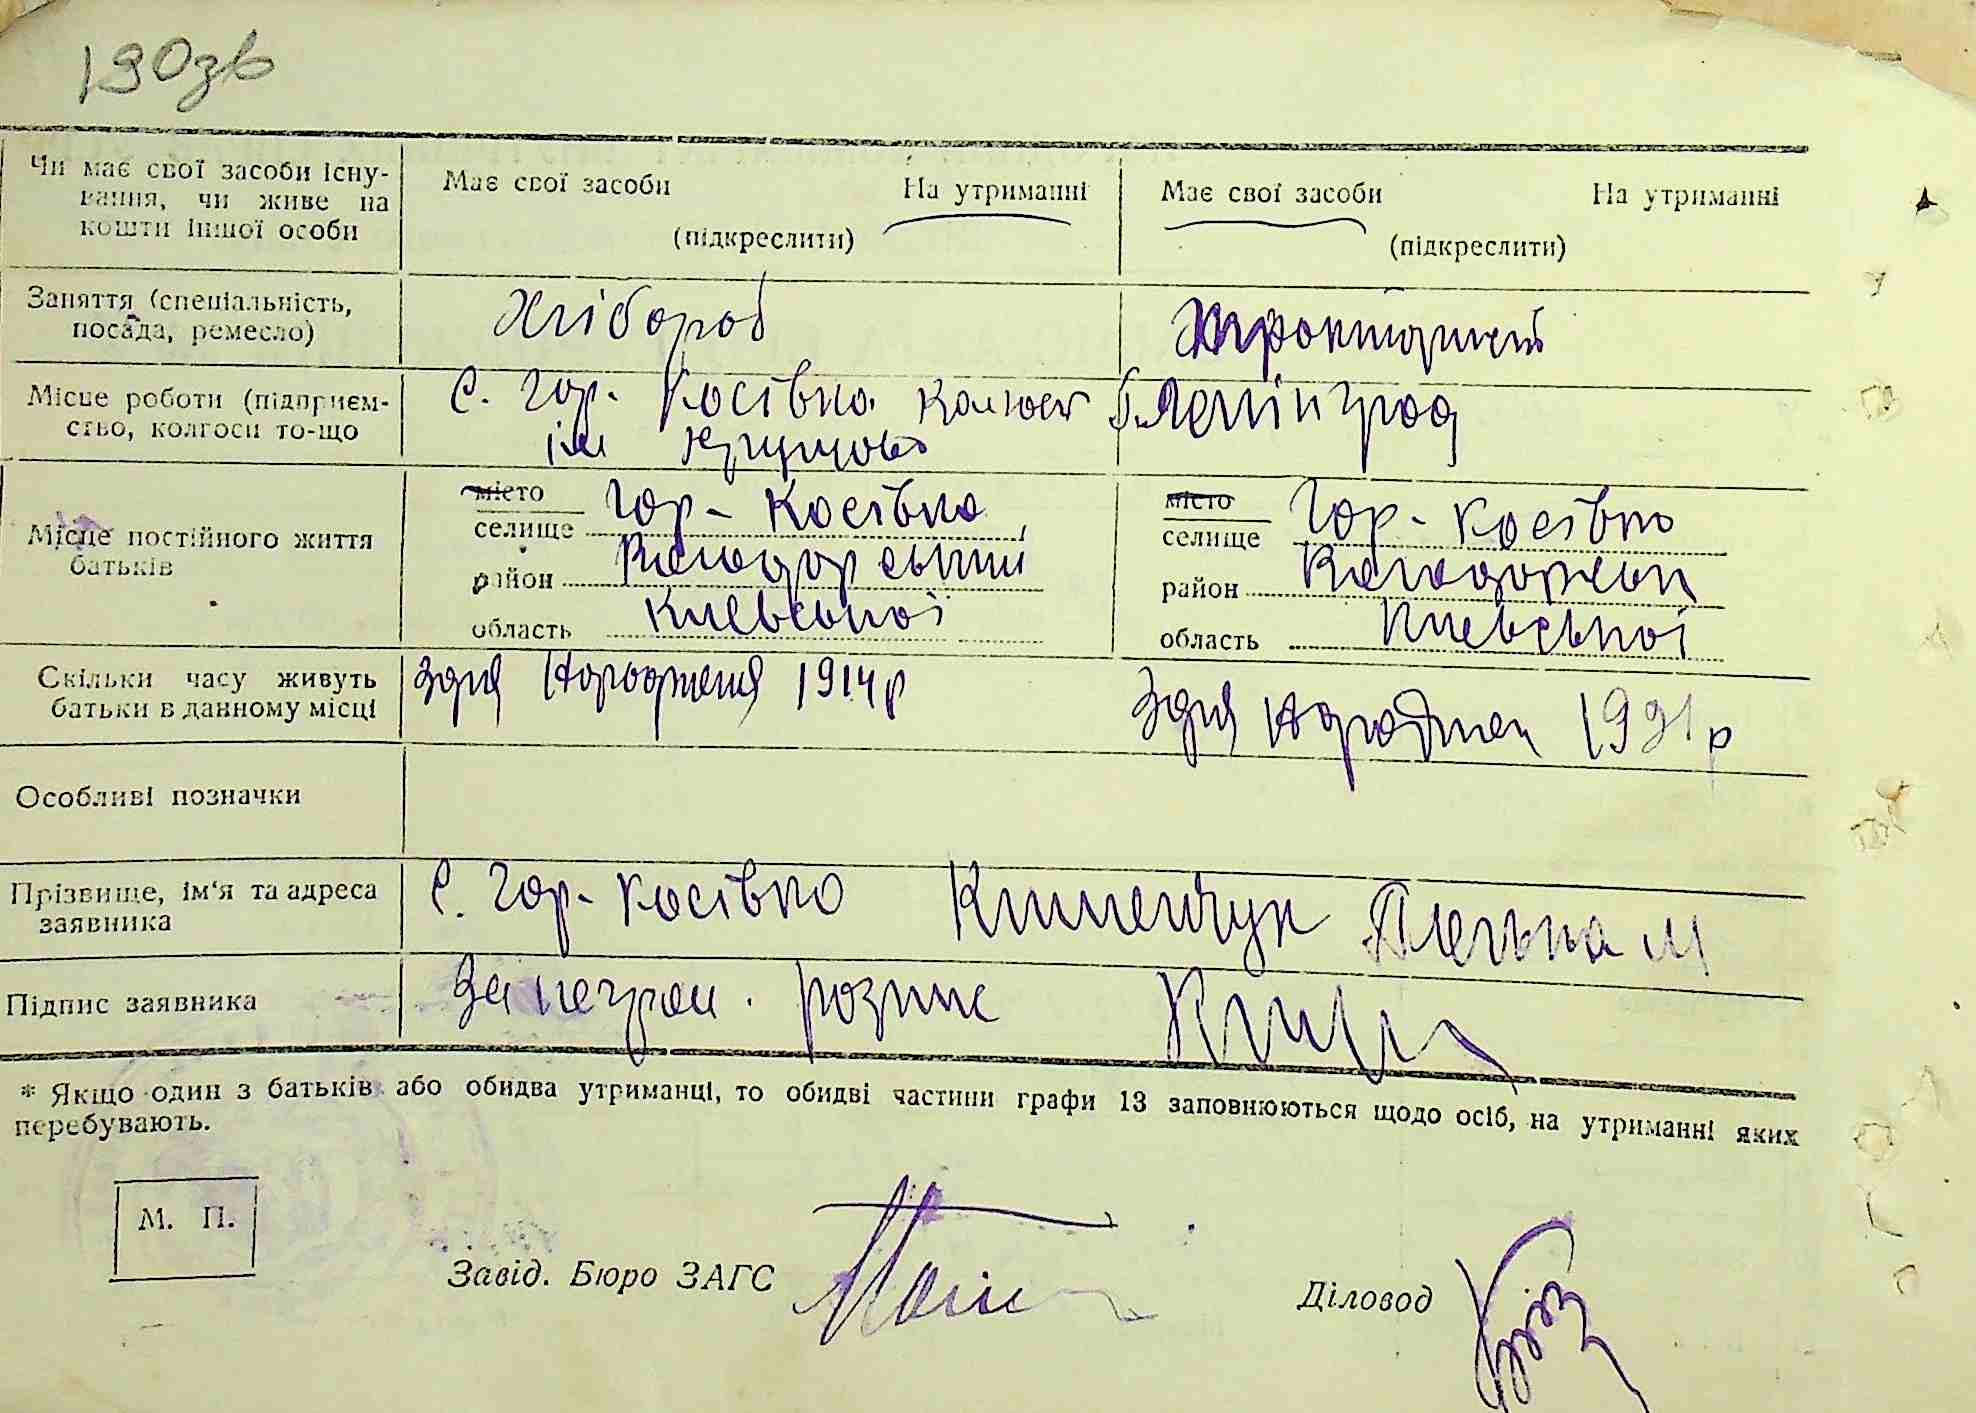 130зв
Чи має свої засоби існу-
вання, чи живе на
кошти іншої особи
Має свої засоби На утриманні
(підкреслити)
Має свої засоби На утриманні
(підкреслити)
Заняття (спеціальність,
посада, ремесло)
Хлібороб
Місце роботи (підприєм-
ство, колгосп то-що
с. Гор. Косівка колгосп
ім
Ленінград
Місце постійного життя
батьків
місто
селище Гор-Косівка
район Володарський
область Киевської
місто
селище Гор-Косівка
район
область Киевської
Скільки часу живуть
батьки в данному місці
здня народженя 1914 р
здня народжен 1921 р
Особливі позначки
Прізвище, ім'я та адреса
заявника
с. Гор-Косівка
Підпис заявника
За неграм. розпис
* Якщо один з батьків або обидва утриманці, то обидві частини графи 13 заповнюються щодо осіб, на утриманні яких
перебувають.
М. П.
Завід. Бюро ЗАГС
Діловод